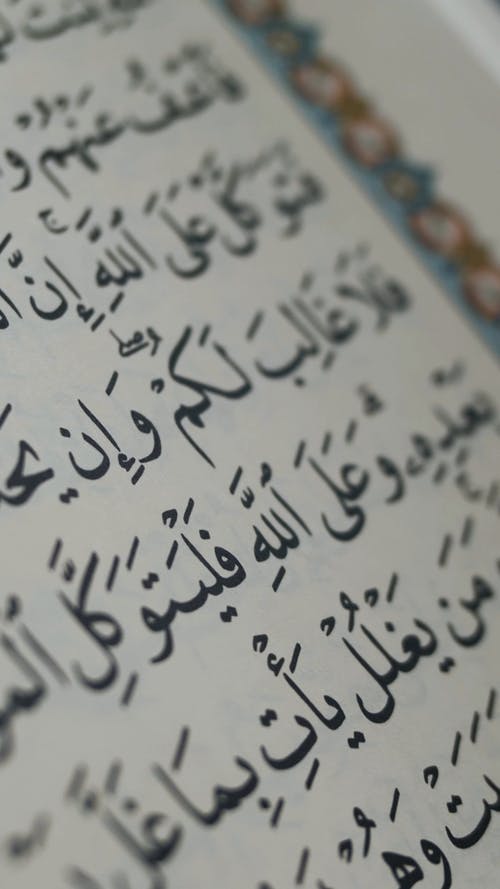 فَٱعْفُ عَنْهُمْ
فَتَوَكَّلْ عَلَى ٱللَّهِ ۚ إِنَّ
فَلَا غَالِبَ لَكُمْ ۖ وَإِن
بَعْدِهِۦ ۗ وَعَلَى ٱللَّهِ فَلْيَتَوَكَّلِ
مَن يَغْلُلْ يَأْتِ بِمَا غَلَّ
وَهُمْ